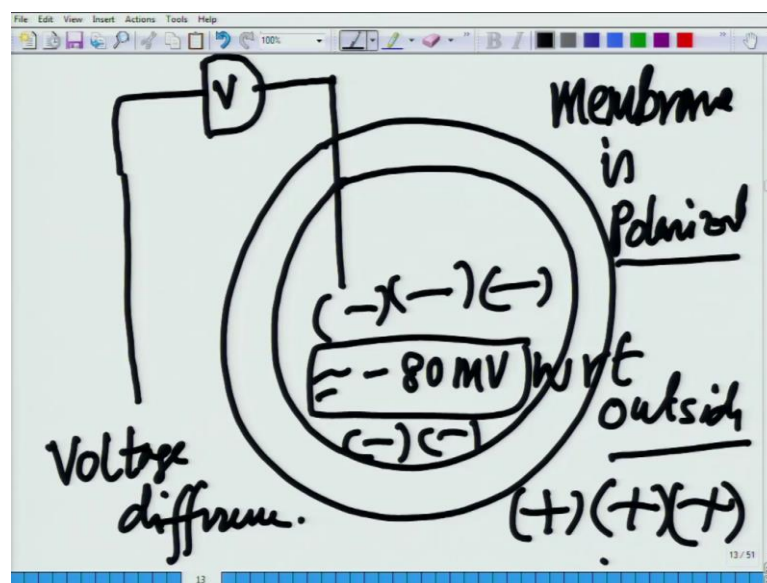 File Edit View Insert Actions Tools Help
100%
B I
V
Membrane
is
Polarized
(-)(-)(-)
≈ -80 mV wrt
outside
(-)(-)
Voltage
difference.
(+)(+)(+)
13/51
13